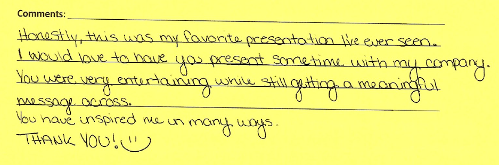 Comments:
Honestly, this was my favorite presentation I've ever seen.
I would love to have you present sometime with my company.
You were very entertaining while still getting a meaningful
message across.
You have inspired me in many ways.
THANK YOU! :)